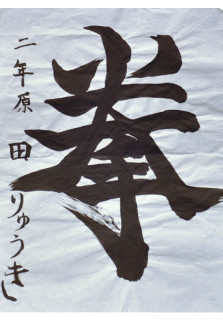 拳
二年原田りゅうき